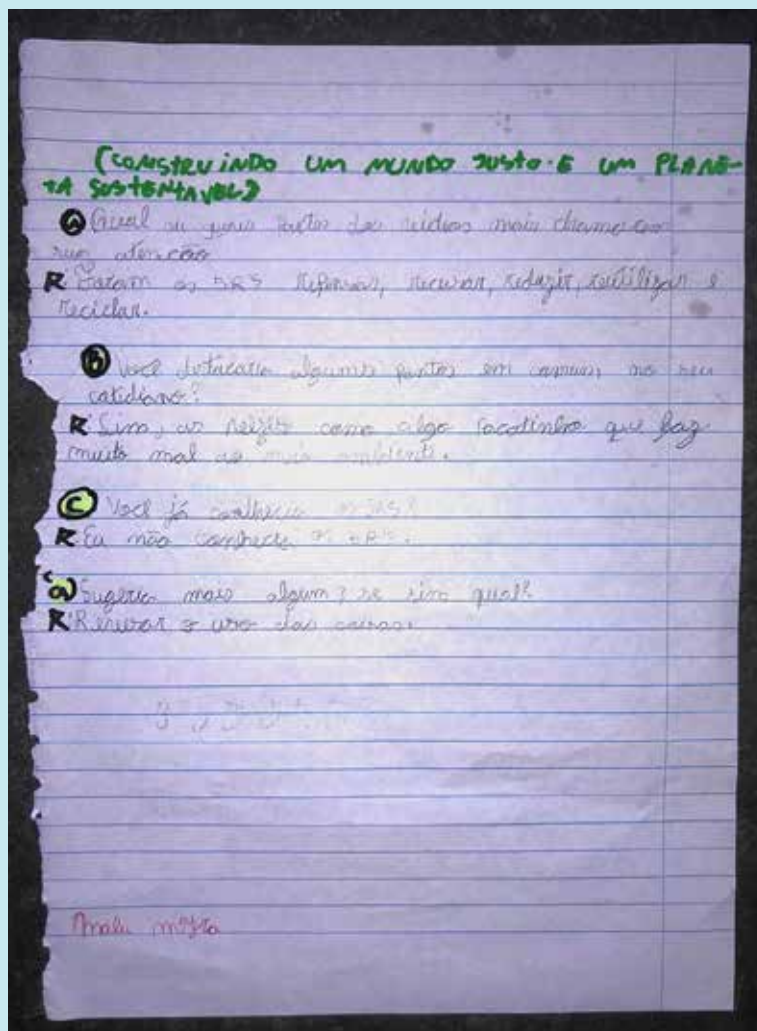 (CONSTRUINDO UM MUNDO JUSTO E UM PLANE-
TA SUSTENTAVEL)
A Qual ou quais dos mais chamaram
sua atenção
R Foram os 5RS repensar, recusar, reduzir, reutilizar e
reciclar.
B Você destacaria alguns pontos em comum, no seu
cotidiano?
R Sim, os como algo que faz
muito mal ao meio ambiente.
C Você já conhecia os 5RS?
R Eu não conhecia os 5RS.
a) Sugeria mais algum? se sim qual?
R o uso das
Analu